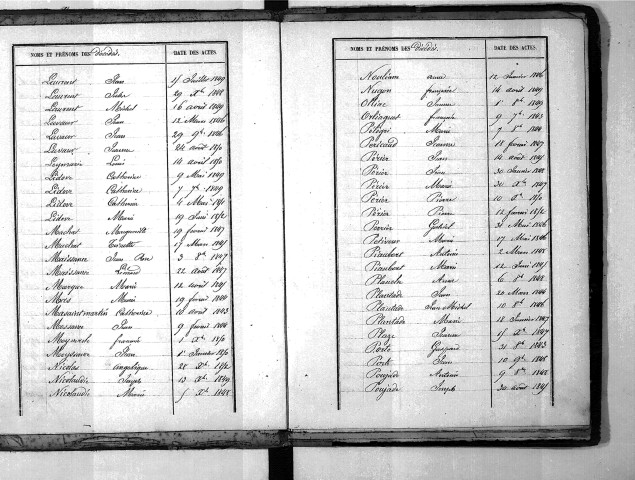 NOMS ET PRÉNOMS DES Décédés. DATE DES ACTES.
Laurent Jean 15 Juillet 1849
Laurent 29 Xbre 1848
Laurent Michel 16 avril 1849
Lavaur Jean 12 Mars 1846
Lavaur Jean 29 9bre 1846
Lavaux Jeanne 24 août 1850
Leymarie Louis 14 avril 1850
Lidove Catherine 9 Mai 1849
Lidove Catherine 7 7bre 1849
Lidove Catherine 4 Mai 1850
Lidove Marie 19 Juin 1852
Marchat Marguerite 19 février 1847
Marchat 17 Mars 1851
Maissonne Jean 3 8bre 1847
Maissonne Léonard 22 août 1847
Marque Marie 12 avril 1851
Mas Marie 19 février 1844
Massaint martin Catherine 10 avril 1843
Massane Jean 9 février 1846
1 Xbre 1850
Jean 1er Janvier 1850
Nicolas angelique 28 Xbre 1852
Nicolaudie Joseph 13 Xbre 1849
Nicolaudie Marie 5 Xbre 1848
NOMS ET PRÉNOMS DES Décédés. DATE DES ACTES.
anna 12 Janvier 1846
françoise 14 avril 1849
1er 8bre 1849
françoise 9 7bre 1843
Marie 7 8bre 1844
Pericaud Jeanne 18 février 1847
Périer Jean 14 août 1851
Périer Jean 30 Janvier 1848
Périer Marie 31 Xbre 1847
Périer Pierre 10 1850
Périer Pierre 12 février 1852
Perrier Gabriel 31 Mai 1846
Marie 17 Mai 1846
Piaubert Antoine 2 Mars 1848
Piaubert Marie 12 Juin 1851
Planche Anne 6 8bre 1848
Plantade Jean 20 Mars 1844
Plantade Jean Michel 10 8bre 1846
Plantade Marie 18 Janvier 1847
Plaze Jeanne 15 Xbre 1847
Porte Gaspard 31 8bre 1843
Porte Jean 10 9bre 1848
Poujade Antoine 9 8bre 1848
Poujade Joseph 30 août 1851